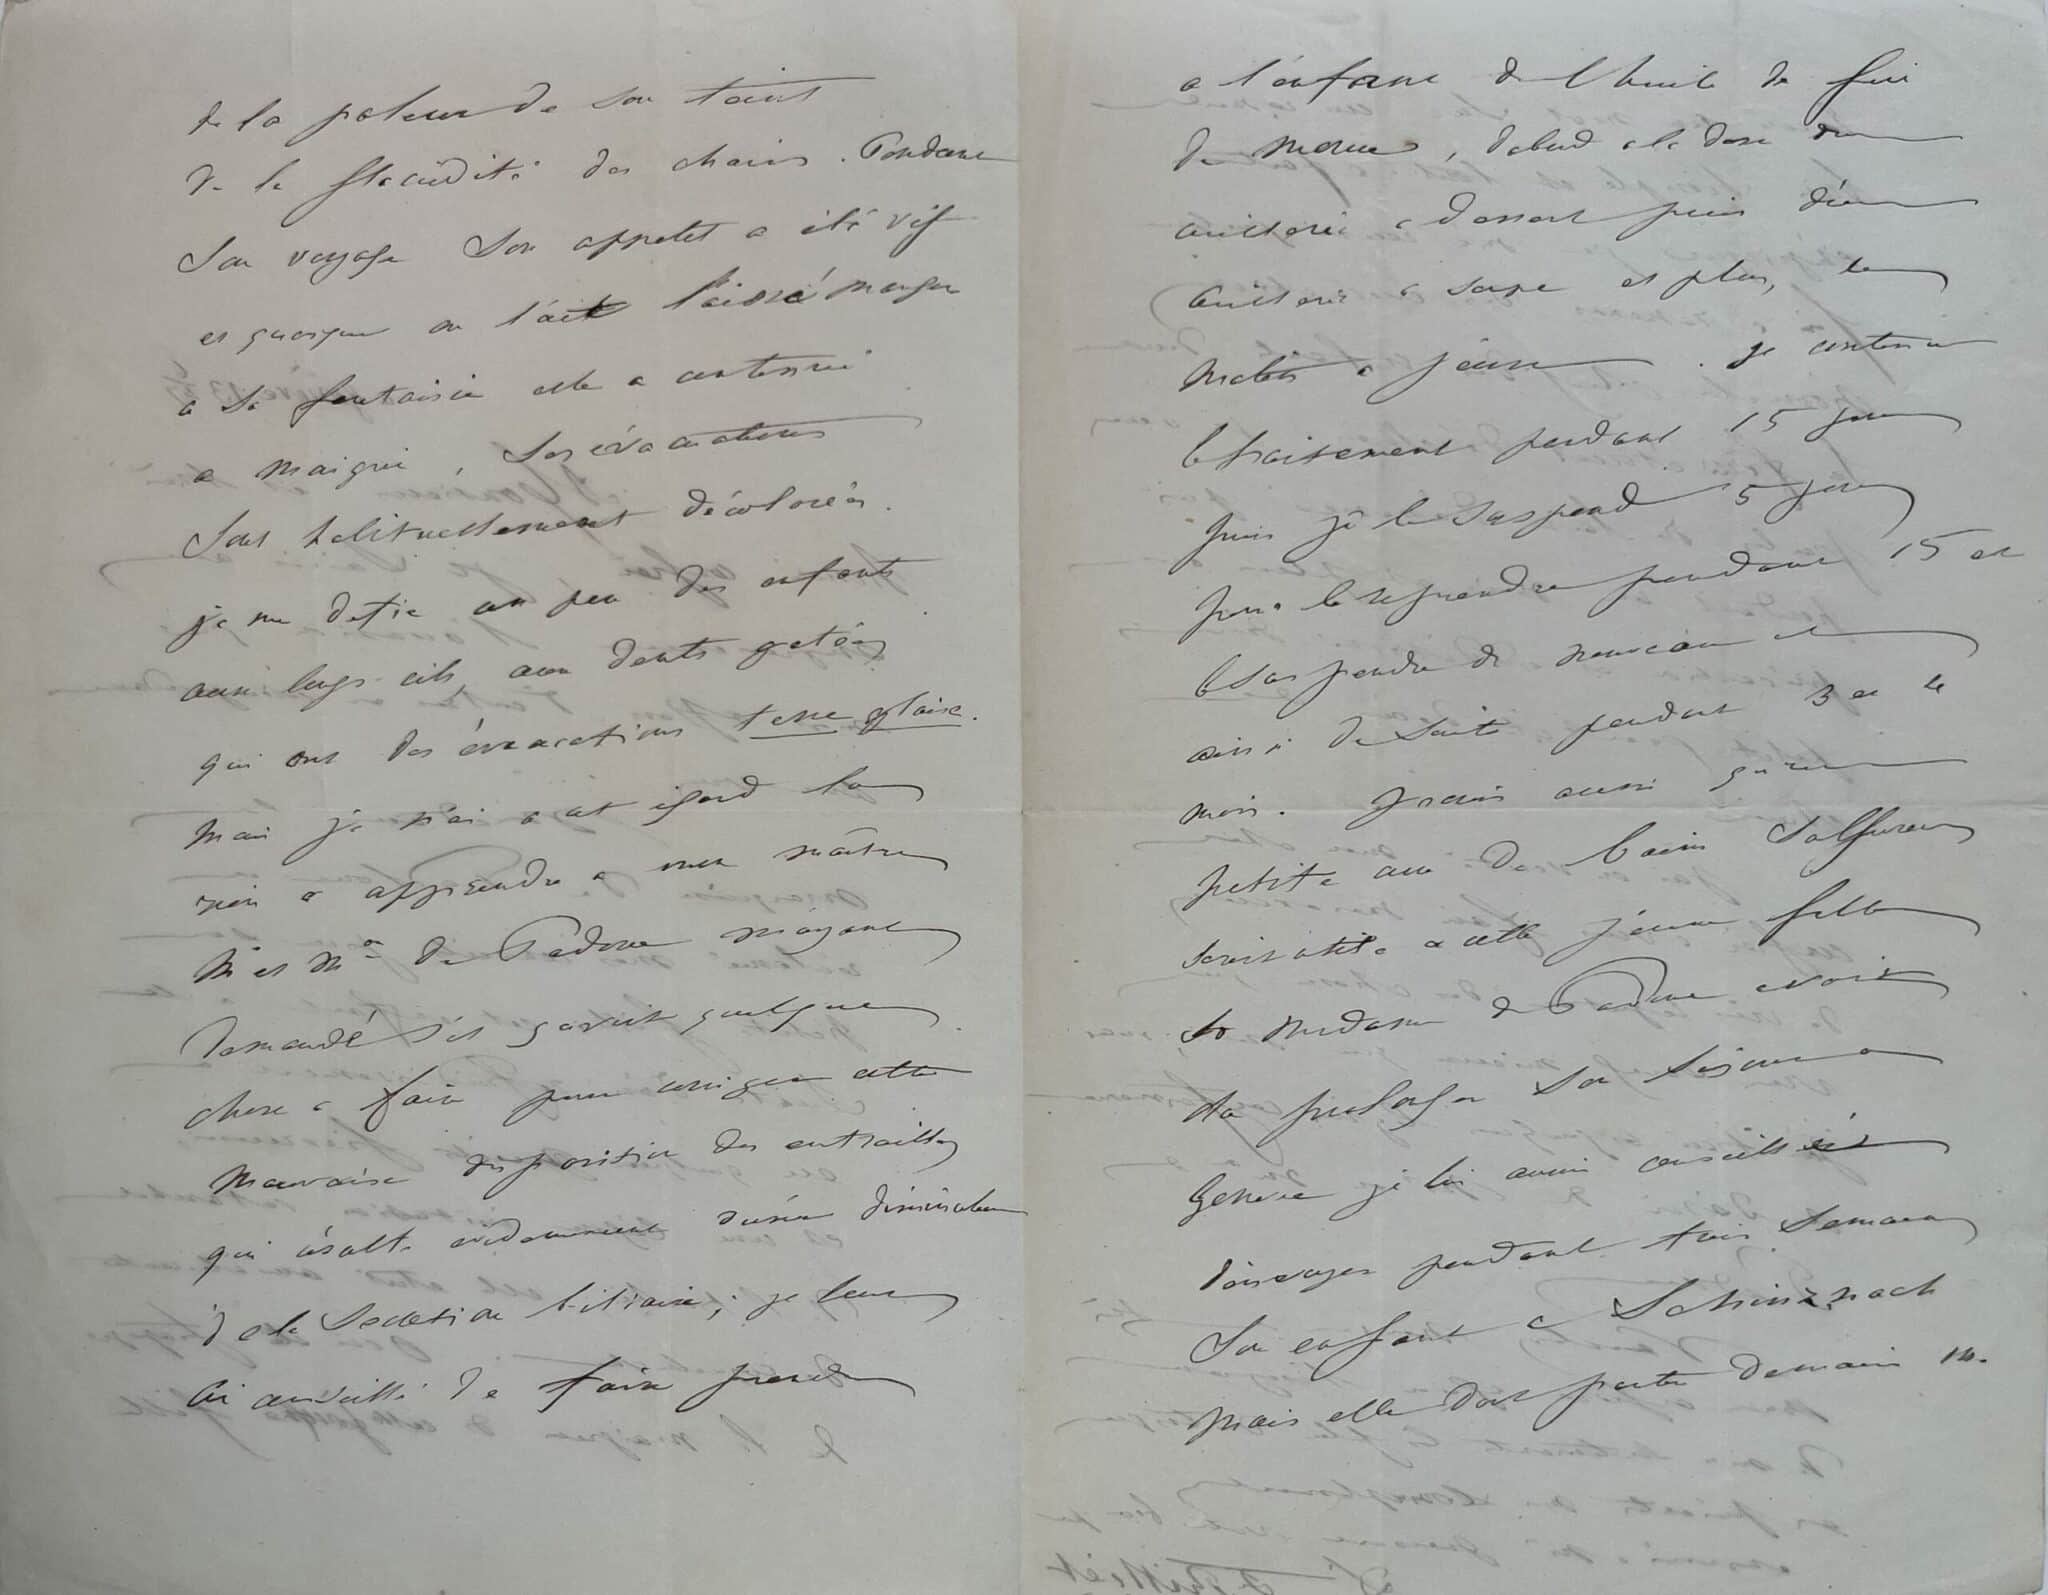 de la paleur de son teint
de la flaccidité des chairs. Pendant
son voyage son appetit a été vif
et quoique on l'ait laissé manger
a sa fantaisie elle a continué
a maigrir, ses évacuations
sont habituellement décolorées.
je me defie un peu des enfants
aux longs cils, aux dents gatées
qui ont des évacuations terre glaise.
Mais je n'ai a cet égard
rien a apprendre a mon maître
Mr et Me de Padoue m'ayant
demandé s'il y avait quelque
chose a faire pour corriger cette
mauvaise disposition des entrailles
qui résulte evidemment d'une diminution
de la Secretion biliaire; je leur
ai conseillé de faire prendre
a l'enfant de l'huile de foie
de morue, d'abord a la dose d'une
cuillerée a dessert puis d'une
cuillerée a soupe et plus, le
matin a jeun. je continue
le traitement pendant 15 jours
puis je le suspend 5 jours
pour le reprendre pendant 15 et
le suspendre de nouveau et
ainsi de suite pendant 3 ou 4
mois. Je crois aussi qu'une
petite cure de bains sulfureux
serait utile a cette jeune fille
Si Madame de Padoue avait
du prolonger son séjour a
Geneve je lui aurais conseillé
d'envoyer pendant trois semaines
son enfant a Schinznach
mais elle doit partir demain 14.